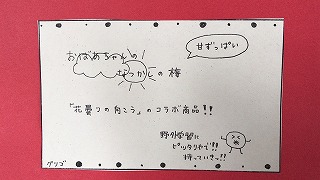 甘ずっぱい
おばあちゃんの
むかしの梅
『花曇りの向こう』のコラボ商品!!
野外学習に
ピッタリやで!!
持っていきっ!!
グリコ